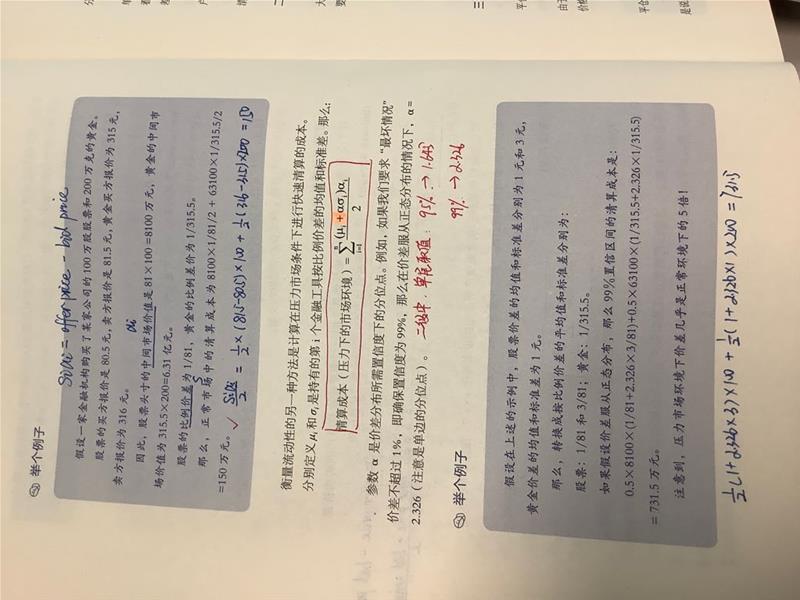 举个例子
Si/αi = offer price - bid price
假设一家金融机构购买了某家公司的 100 万股股票和 200 万克的黄金。
股票的买方报价是 80.5 元,卖方报价是 81.5 元,黄金买方报价为 315 元,
卖方报价为 316 元。
因此,股票头寸的中间市场价值是 81×100 =8100 万元,黄金的中间市
αi
场价值为 315.5×200=6.31 亿元。
股票的比例价差为 1/81,黄金的比例价差为 1/315.5。
S
那么,正常市场中的清算成本为 8100×1/81/2 + 63100×1/315.5/2
=150 万元。
✓ Siαi/2 = 1/2×(81.5-80.5)×100 + 1/2(316-315)×200 = 150
衡量流动性的另一种方法是计算在压力市场条件下进行快速清算的成本。
分别定义 μi 和 σi 是持有的第 i 个金融工具按比例价差的均值和标准差。那么:
清算成本(压力下的市场环境)= ∑ⁿᵢ₌₁ (μi + ασi)αi / 2
参数 α 是价差分布所需置信度下的分位点。例如,如果我们要求“最坏情况”
价差不超过 1%,即确保置信度为 99%,那么在价差服从正态分布的情况下,α =
2.326(注意是单边的分位点)。
二级中,单尾取值:95% → 1.645
99% → 2.326
举个例子
假设在上述的示例中,股票价差的均值和标准差分别为 1 元和 3 元,
黄金价差的均值和标准差为 1 元。
那么,转换成按比例价差的平均值和标准差分别为:
股票:1/81 和 3/81;黄金:1/315.5。
如果假设价差服从正态分布,那么 99% 置信区间的清算成本是:
0.5×8100×(1/81+2.326×3/81)+0.5×63100×(1/315.5+2.326×1/315.5)
= 731.5 万元。
注意到,压力市场环境下价差几乎是正常环境下的 5 倍!
1/2(1+2.326×3)×100 + 1/2(1+2.326×1)×200 = 731.5